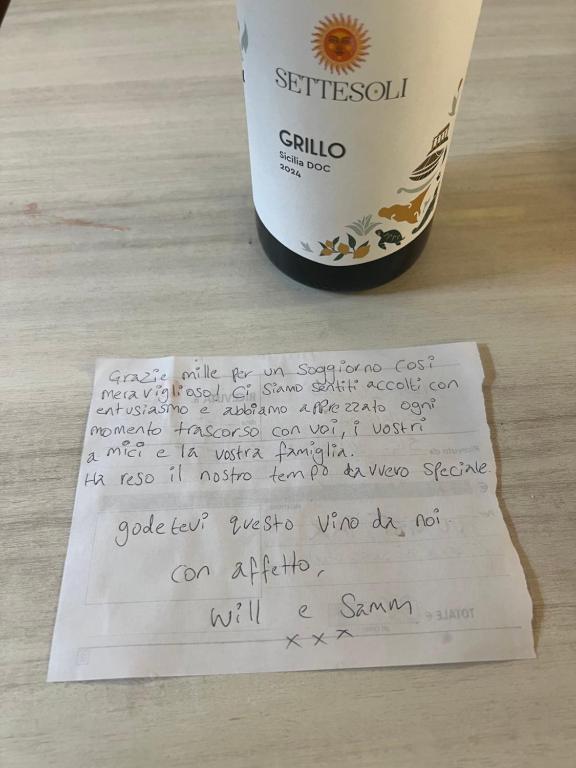 SETTESOLI
GRILLO
Sicilia DOC
2024
Grazie mille per un soggiorno così
meraviglioso! Ci siamo sentiti accolti con
entusiasmo e abbiamo apprezzato ogni
momento trascorso con voi, i vostri
amici e la vostra famiglia.
Ha reso il nostro tempo davvero speciale.
godetevi questo vino da noi
con affetto,
Will e Samm
x x x
TOTALE €